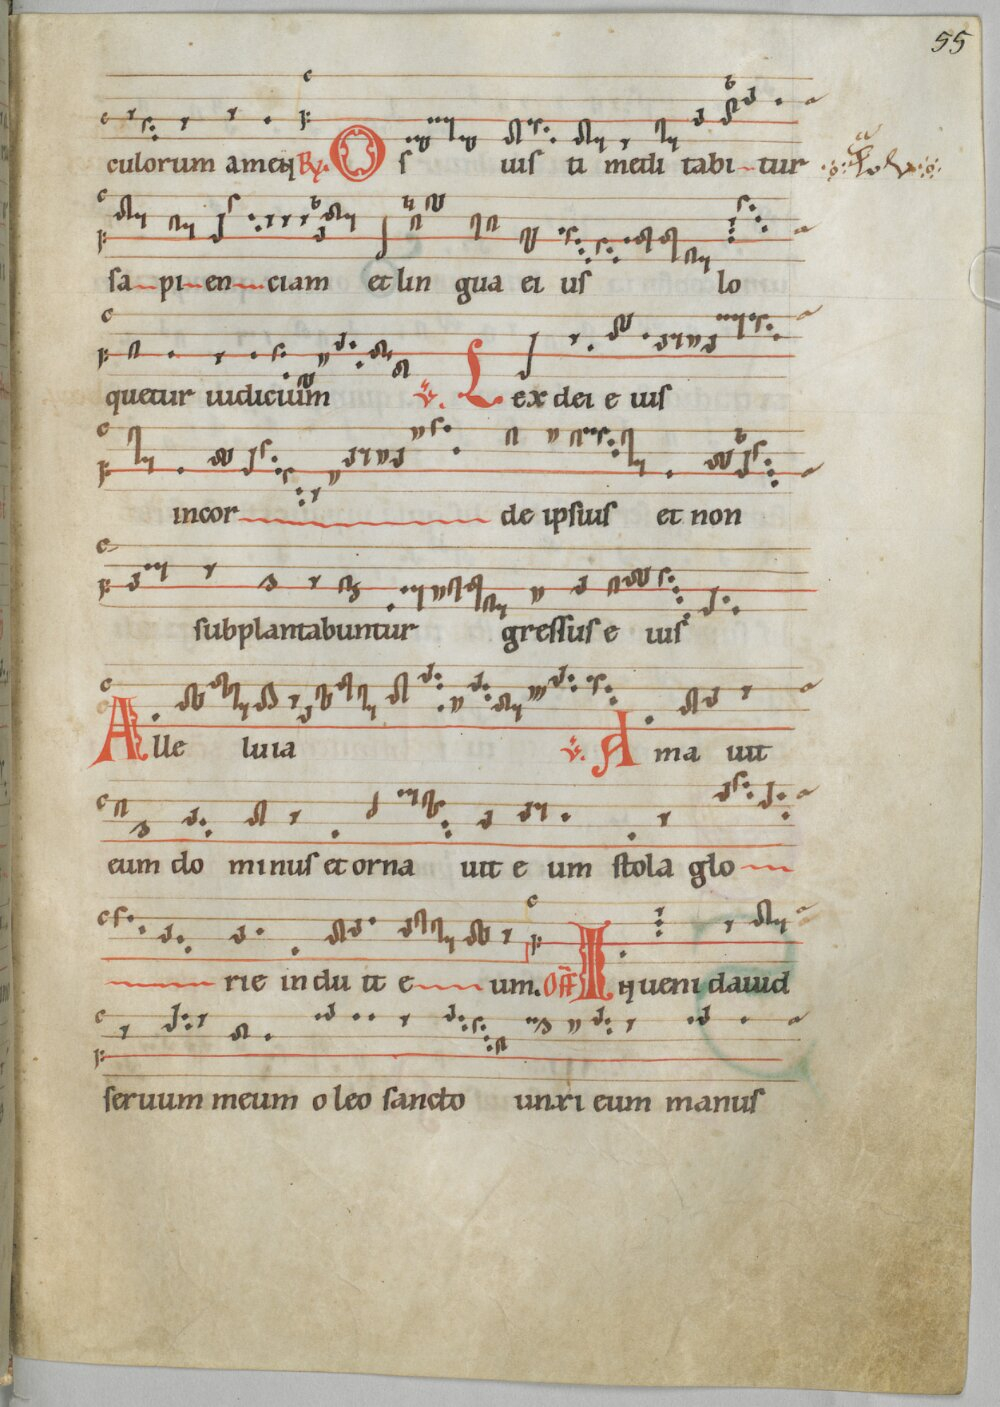 55
culorum amen R. Os iusti medi tabi tur
sa pi en ciam et lin gua ei us lo
quetur iudicium V. Lex dei e ius
incor de ipsius et non
subplantabuntur gressus e ius
Alle luia V. Ama uit
eum do minus et orna uit e um stola glo
rie indu it e um. Off Inueni dauid
seruum meum oleo sancto unxi eum manus